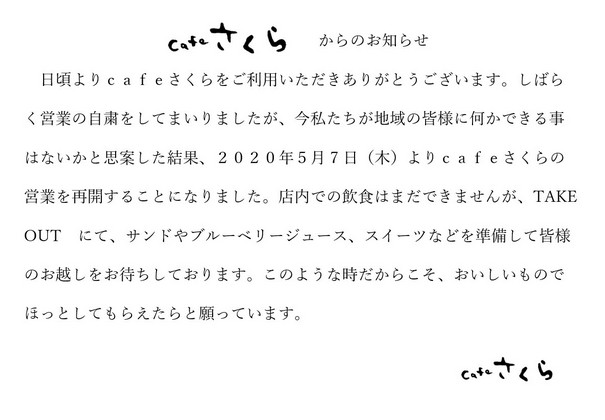 cafeさくら からのお知らせ
　日頃よりｃａｆｅさくらをご利用いただきありがとうございます。しばら
く営業の自粛をしてまいりましたが、今私たちが地域の皆様に何かできる事
はないかと思案した結果、２０２０年５月７日（木）よりｃａｆｅさくらの
営業を再開することになりました。店内での飲食はまだできませんが、TAKE
OUT　にて、サンドやブルーベリージュース、スイーツなどを準備して皆様
のお越しをお待ちしております。このような時だからこそ、おいしいもので
ほっとしてもらえたらと願っています。
cafeさくら